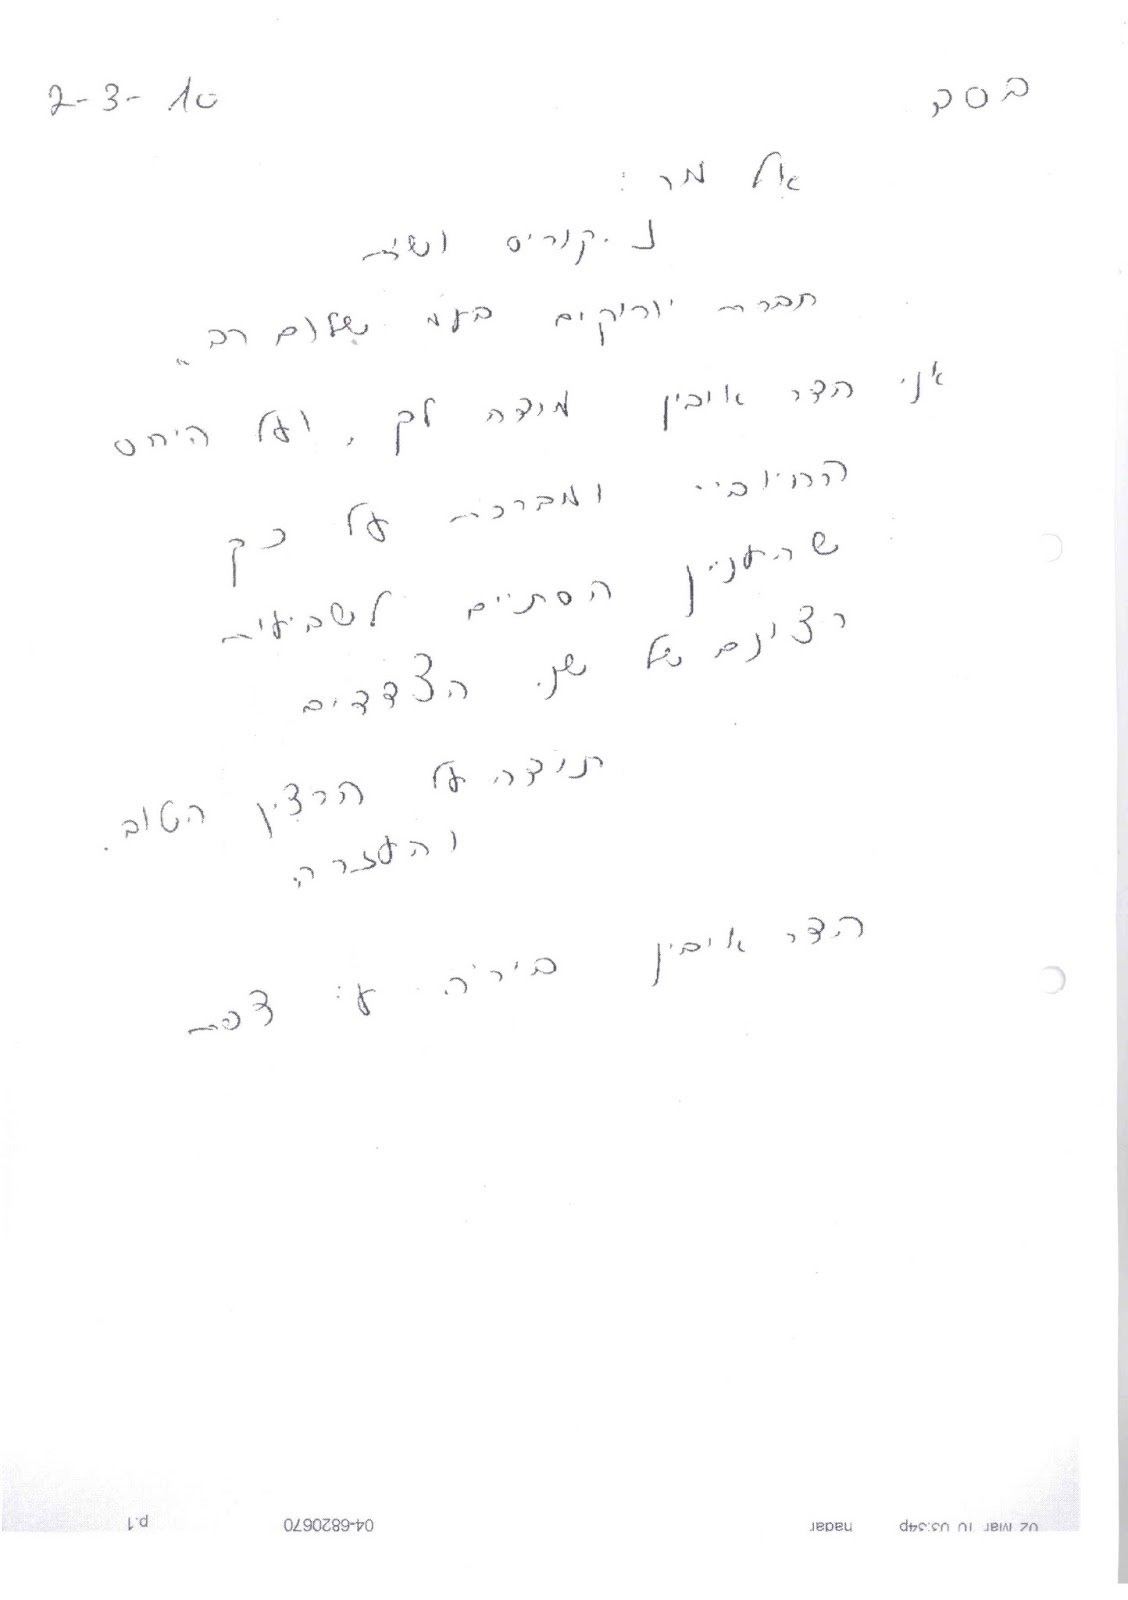 2-3-10
אל מר:
חברת יוריקים בעמ שלום רב,,
אני הדר אובין מודה לך, ועל היחס
החיובי ומברכת על כך
שהעניין הסתיים לשביעות
רצונם של שני הצדדים
תודה על הרצון הטוב.
והעזרה
הדר איבין
02 Mar 10 03:34p hadar 04-6820670 p.1